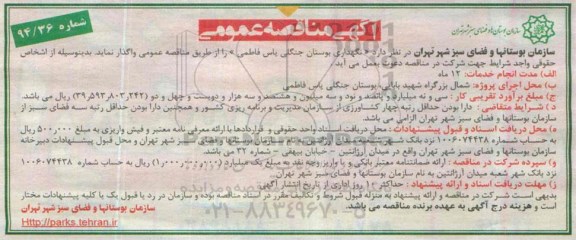 شماره ۹۴/۳۶
آگهی مناقصه عمومی
سازمان بوستانها و فضای سبز شهر تهران
سازمان بوستانها و فضای سبز شهر تهران در نظر دارد « نگهداری بوستان جنگلی یاس فاطمی » را از طریق مناقصه عمومی واگذار نماید. بدینوسیله از اشخاص
حقوقی واجد شرایط جهت شرکت در مناقصه دعوت بعمل می آید
الف) مدت انجام خدمات: ۱۲ ماه
ب) محل اجرای پروژه: شمال بزرگراه شهید بابایی-بوستان جنگلی یاس فاطمی
ج) مبلغ برآورد تقریبی کار : سی و نه میلیارد و پانصد و نود و سه میلیون و هشتصد و سه هزار و دویست و چهل و دو (۳۹,۵۹۳,۸۰۳,۲۴۲) ریال می باشد.
د ) شرایط متقاضی : دارا بودن حداقل رتبه چهار کشاورزی از سازمان مدیریت و برنامه ریزی کشور و همچنین دارا بودن حداقل رتبه سه فضای سبز از
سازمان بوستانها و فضای سبز شهر تهران الزامی می باشد.
ه ) محل دریافت اسناد و قبول پیشنهادات : محل دریافت اسناد واحد حقوقی و قراردادها با ارائه معرفی نامه معتبر و فیش واریزی به مبلغ ۵۰۰,۰۰۰ ریال
به حساب شماره ۱۰۰۶۰۷۴۴۳۸ نزد بانک شهر شعبه میدان آرژانتین به نام سازمان بوستانها و فضای سبز شهر تهران و محل قبول پیشنهادات دبیرخانه
سازمان بوستانها و فضای سبز شهر تهران واقع در میدان آرژانتین - خیابان بیهقی - شماره ۳۲ می باشد
و) سپرده شرکت در مناقصه : ارائه ضمانتنامه معتبر بانکی و یا واریز وجه نقد به مبلغ یک میلیارد (۱,۰۰۰,۰۰۰,۰۰۰) ریال به حساب شماره ۱۰۰۶۰۷۴۴۳۸
نزد بانک شهر شعبه میدان آرژانتین به نام سازمان بوستانها و فضای سبز شهر تهران.
ز) مهلت دریافت اسناد و ارائه پیشنهاد : حداکثر ۱۰ روز اداری از تاریخ انتشار آگهی
بدیهی است شرکت در مناقصه و ارائه پیشنهاد به منزله قبول شروط و تکالیف مقرر در اسناد مناقصه بوده و سازمان در رد یا قبول یک یا کلیه پیشنهادات مختار
است و هزینه درج آگهی به عهده برنده مناقصه می باشد.
سازمان بوستانها و فضای سبز شهر تهران
http://parks.tehran.ir
۰۲۱-۸۸۳۴۹۶۷۰-۵